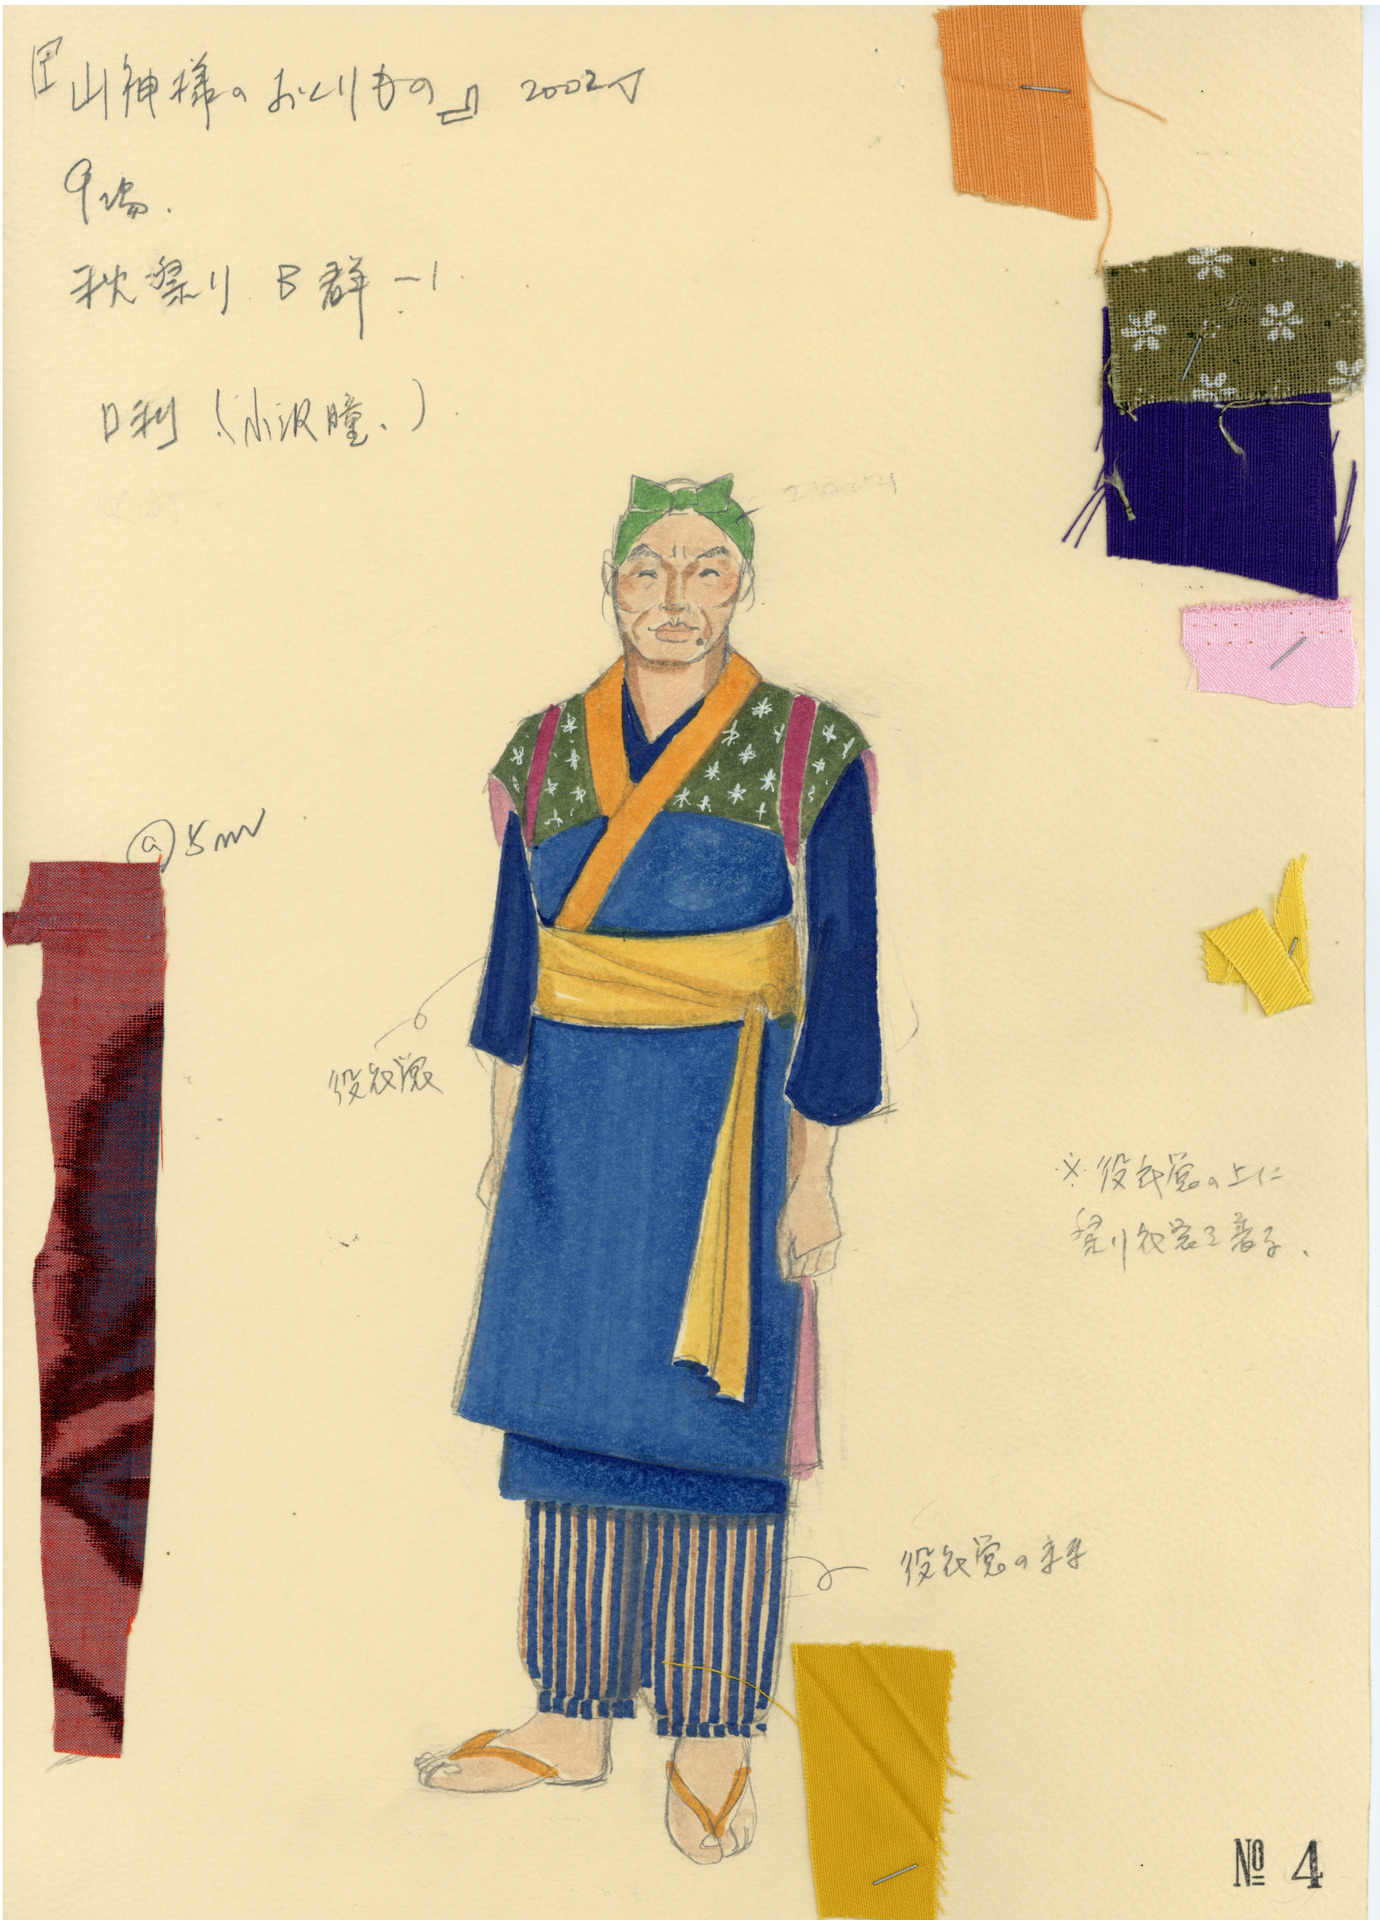 『山神様のおくりもの』 2002
9場.
秋祭り B群-1
(小沢瞳.)
@5m
役衣裳
※役衣裳の上に
祭り衣裳を着る.
役衣裳の
No 4